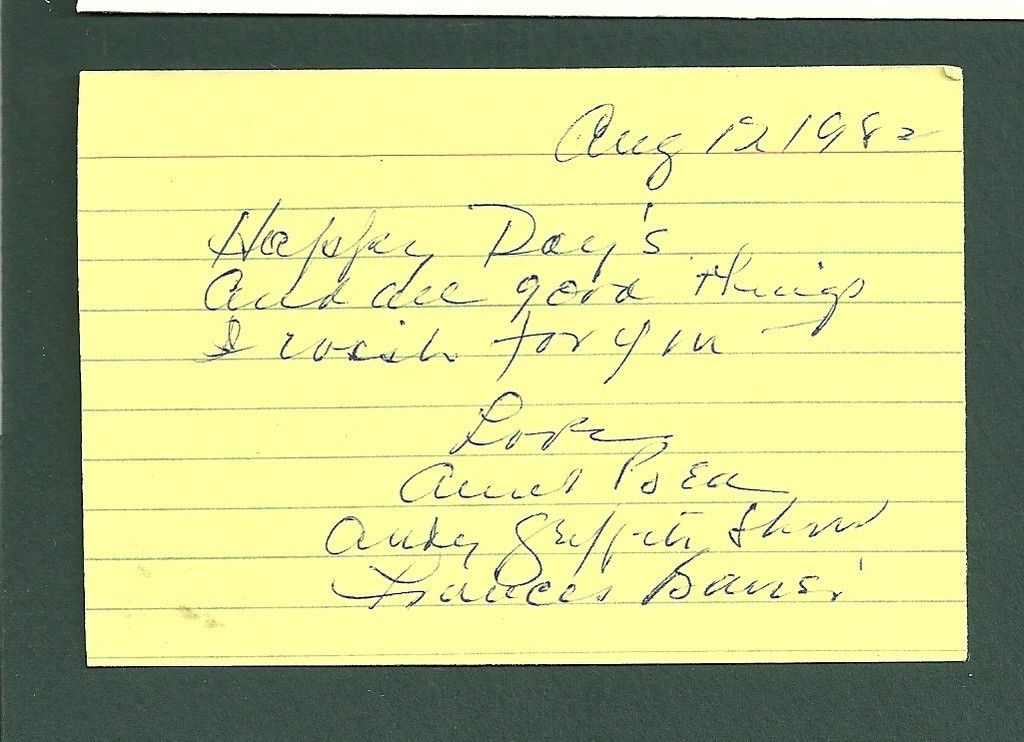 Aug 12 1982
Happy Day's
and all good things
I wish for you
Love
Aunt Bea
Andy Griffith Show
Frances Bavier